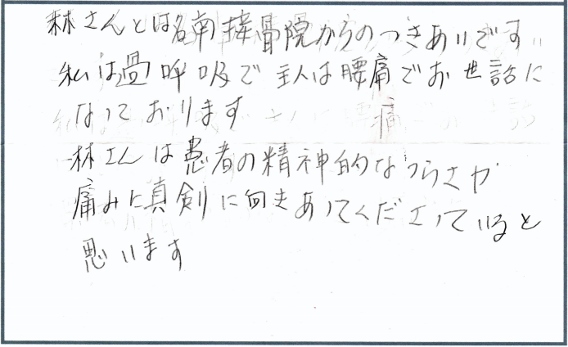 林さんとは名南接骨院からのつきあいです
私は過呼吸で主人は腰痛でお世話に
なっております
林さんは患者の精神的なつらさか
痛みに真剣に向きあってくださっていると
思います